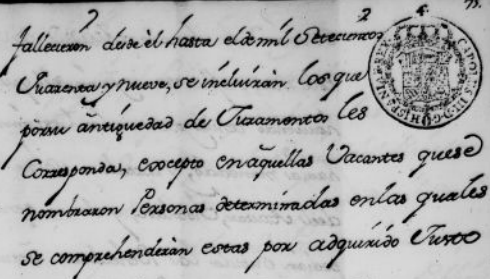 2 4. 73.
fallecieron desde èl hasta el de mil Setecientos
Quarenta y nueve, se incluirán los que
por su antigüedad de Juramentos les
Corresponda, excepto en aquellas Vacantes que se
nombraron Personas determinadas en las quales
se comprehenderàn estas por adquirido Justo